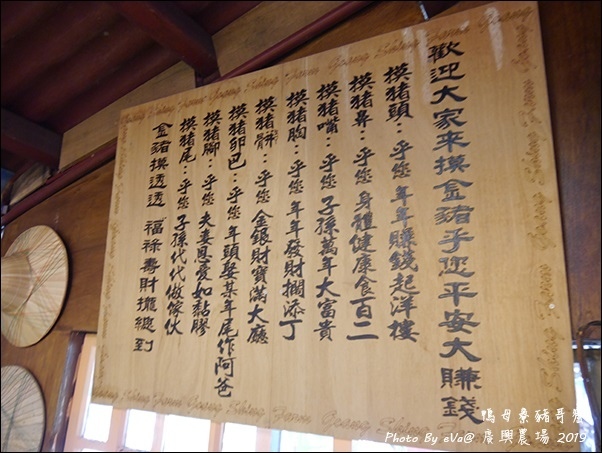 歡迎大家來摸金豬乎您平安大賺錢
摸豬頭：乎您 年年賺錢起洋樓
摸豬鼻：乎您 身體健康食百二
摸豬嘴：乎您 子孫萬年大富貴
摸豬胸：乎您 年年發財擱添丁
摸豬肺：乎您 金銀財寶滿大廳
摸豬卵巴：乎您 年頭娶某年尾作阿爸
摸豬腳：乎您 夫妻恩愛如黏膠
摸豬尾：乎您 子孫代代做傢伙
金豬摸透透 福祿壽財攏總到
鴨母寮豬哥
Photo By eVa@ 廣興農場 2019